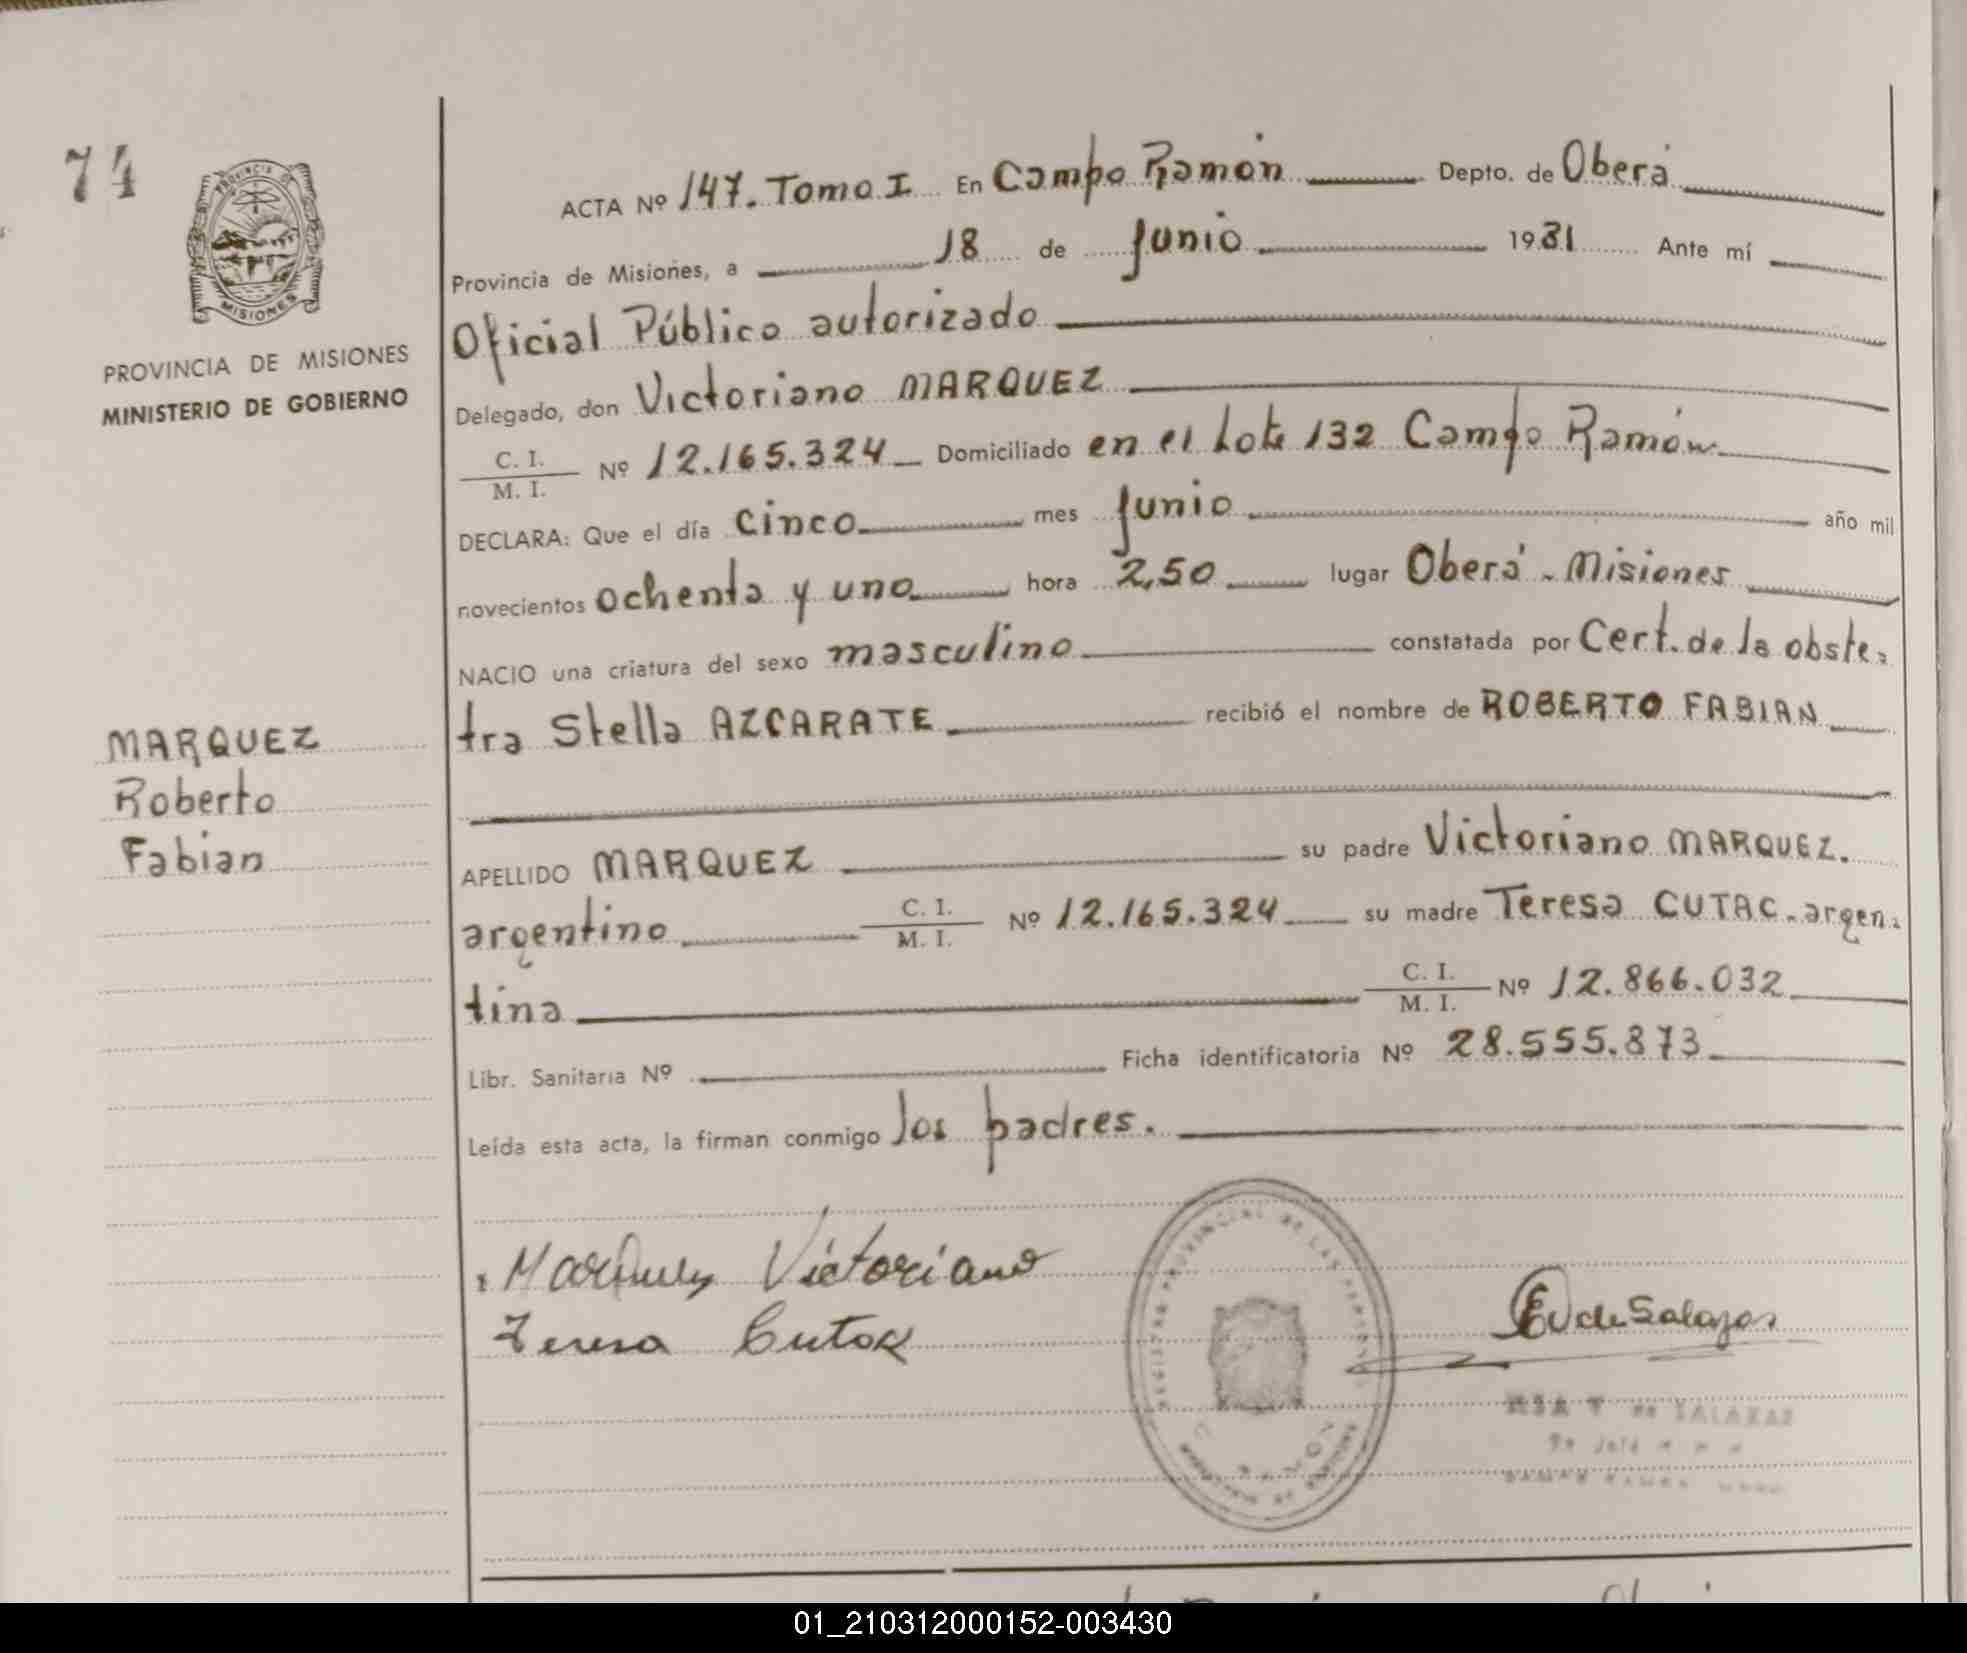 74
PROVINCIA DE MISIONES
MISIONES
PROVINCIA DE MISIONES
MINISTERIO DE GOBIERNO
MARQUEZ
Roberto
Fabian
ACTA Nº 147. Tomo I En Campo Ramón Depto. de Oberá
Provincia de Misiones, a 18 de Junio 1981 Ante mí
Oficial Público autorizado
Delegado, don Victoriano MARQUEZ
C. I.
M. I. Nº 12.165.324 Domiciliado en el Lote 132 Campo Ramón
DECLARA: Que el día cinco mes Junio año mil
novecientos ochenta y uno hora 2,50 lugar Oberá - Misiones
NACIO una criatura del sexo masculino constatada por Cert. de la obste-
tra Stella AZCARATE recibió el nombre de ROBERTO FABIAN
APELLIDO MARQUEZ su padre Victoriano MARQUEZ.
argentino C. I.
M. I. Nº 12.165.324 su madre Teresa CUTAC - argen-
tina C. I.
M. I. Nº 12.866.032
Libr. Sanitaria Nº Ficha identificatoria Nº 28.555.873
Leída esta acta, la firman conmigo los padres.
Victoriano
Teresa Cutak
REGISTRO PROVINCIAL DE LAS PERSONAS
de Salazar
de SALAZAR
01_210312000152-003430